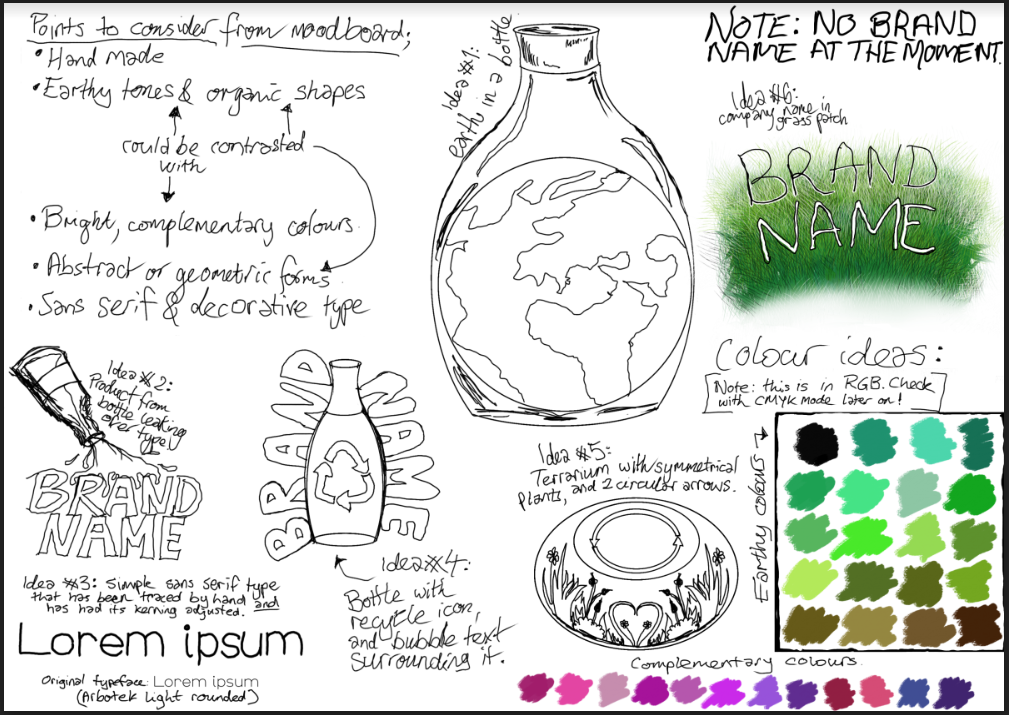 Points to consider from moodboard;
• Hand made
• Earthy tones & organic shapes
could be contrasted
with
• Bright, complementary colours.
• Abstract or geometric forms
• Sans serif & decorative type
Idea #1:
earth in a bottle.
NOTE: NO BRAND
NAME AT THE MOMENT.
Idea #6:
company name in
grass patch
BRAND
NAME
Idea #2:
Product from
bottle leaking
over type
BRAND
NAME
Idea #3: Simple sans serif type
that has been traced by hand and
has had its kerning adjusted.
Lorem ipsum
Original typeface: Lorem ipsum
(Arbotek Light rounded)
BRAND
NAME
Idea #4:
Bottle with
recycle icon,
and bubble text
surrounding it.
Idea #5:
Terrarium with symmetrical
plants, and 2 circular arrows.
Colour ideas:
Note: this is in RGB. Check
with CMYK mode later on!
Earthy colours
Complementary colours.